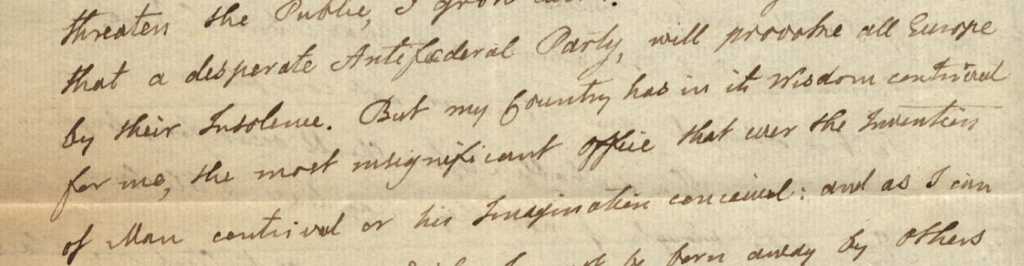 threaten the Public, I grow
that a desperate Antefœderal Party, will provoke all Europe
by their Insolence. But my Country has in its Wisdom contrived
for me, the most insignificant office that ever the Invention
of Man contrived or his Imagination conceived: and as I can
be born away by others